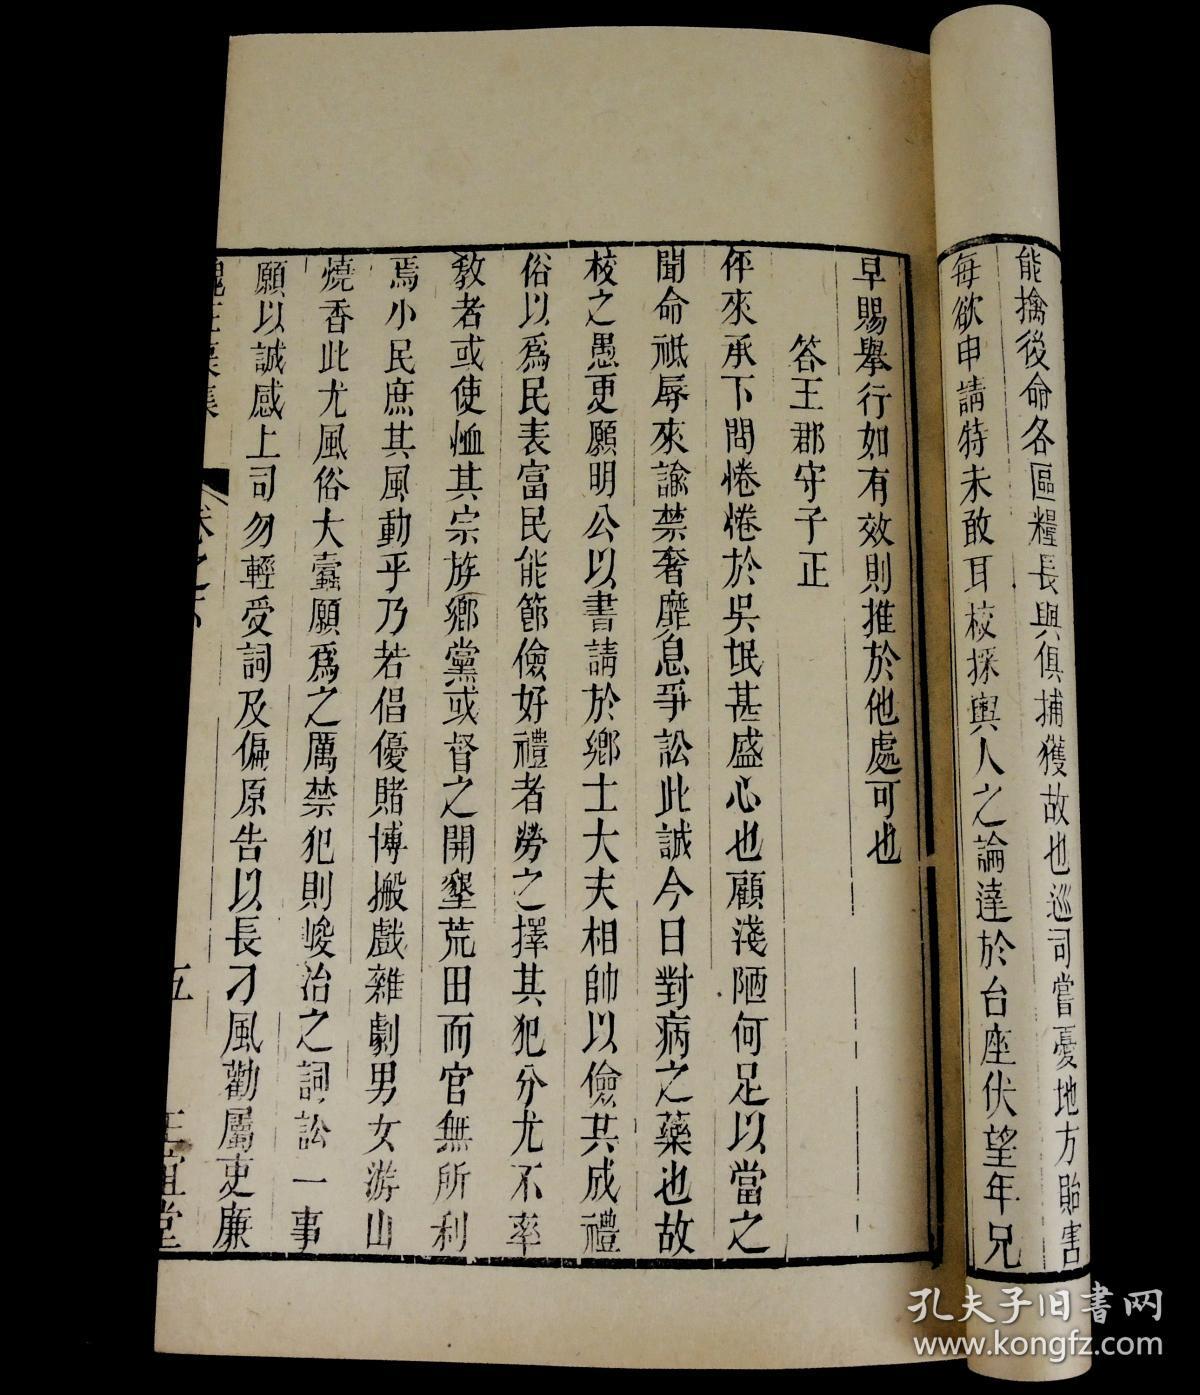 能擒後命各區糧長與俱捕獲故也巡司嘗憂地方貽害
每欲申請特未敢耳校採輿人之論達於台座伏望年兄
早賜舉行如有效則推於他處可也
答王郡守子正
伻來承下問惓惓於吳氓甚盛心也顧淺陋何足以當之
聞命祗辱來諭禁奢靡息爭訟此誠今日對病之藥也故
校之愚更願明公以書請於鄉士大夫相帥以儉其成禮
俗以爲民表富民能節儉好禮者勞之擇其犯分尤不率
教者或使恤其宗族鄉黨或督之開墾荒田而官無所利
焉小民庶其風動乎乃若倡優賭博搬戲雜劇男女游山
燒香此尤風俗大蠹願爲之厲禁犯則峻治之詞訟一事
願以誠感上司勿輕受詞及偏原告以長刁風勸屬吏廉
卷之
五
正誼堂
孔夫子旧书网
www.kongfz.com